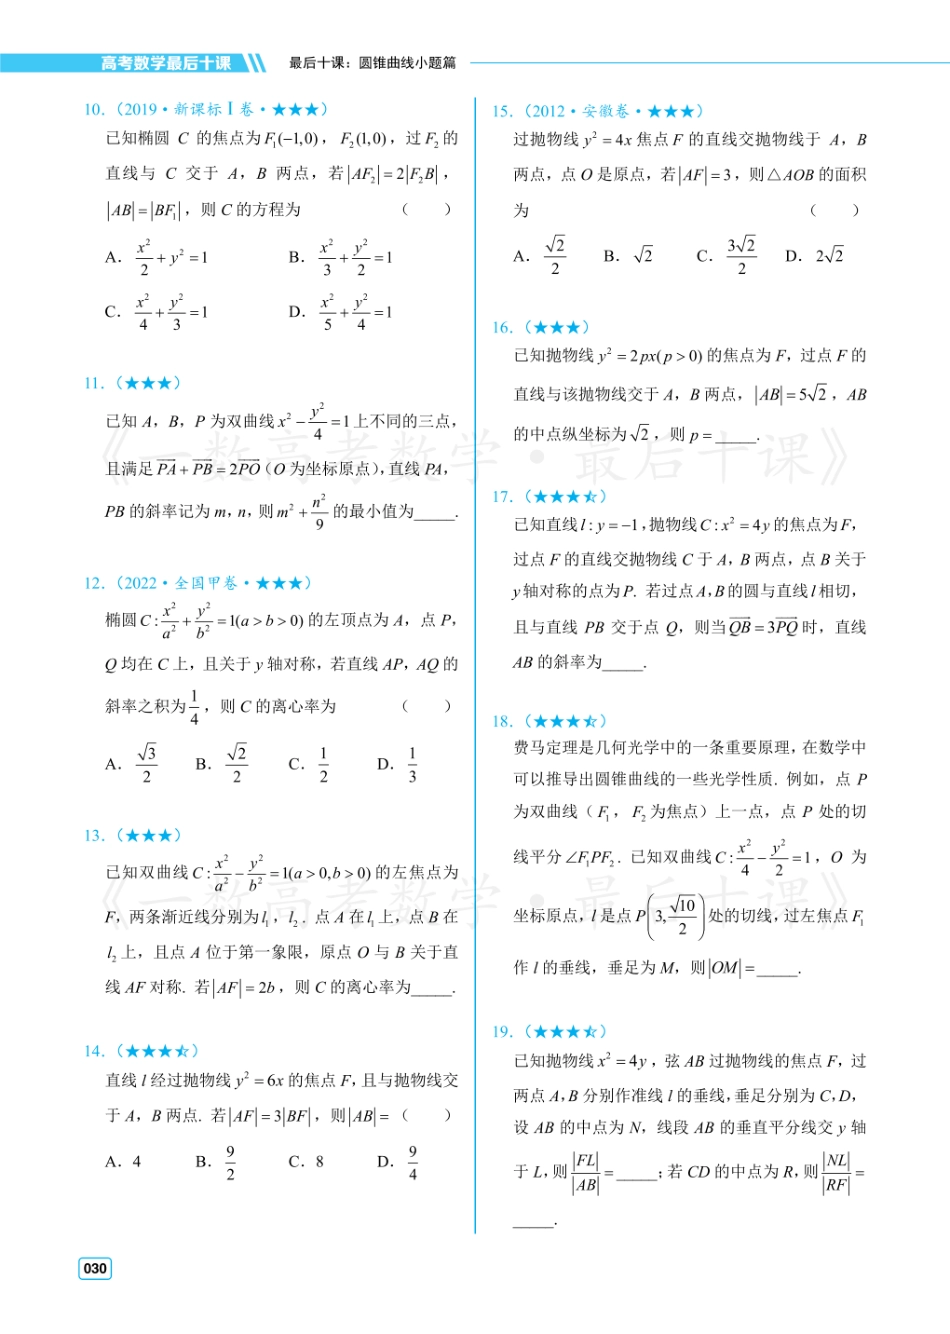 高考数学最后十课 最后十课：圆锥曲线小题篇
10.（2019·新课标Ⅰ卷·★★★）
已知椭圆 C 的焦点为 F₁(−1,0)，F₂(1,0)，过 F₂ 的
直线与 C 交于 A，B 两点，若 |AF₂| = 2|F₂B|，
|AB| = |BF₁|，则 C 的方程为 （ ）
A. x²/2 + y² = 1 B. x²/3 + y²/2 = 1
C. x²/4 + y²/3 = 1 D. x²/5 + y²/4 = 1
11.（★★★）
已知 A，B，P 为双曲线 x² − y²/4 = 1 上不同的三点，
且满足 PA + PB = 2PO（O 为坐标原点），直线 PA，
PB 的斜率记为 m，n，则 m² + n²/9 的最小值为_____.
12.（2022·全国甲卷·★★★）
椭圆 C : x²/a² + y²/b² = 1(a > b > 0) 的左顶点为 A，点 P，
Q 均在 C 上，且关于 y 轴对称，若直线 AP，AQ 的
斜率之积为 1/4，则 C 的离心率为 （ ）
A. √3/2 B. √2/2 C. 1/2 D. 1/3
13.（★★★）
已知双曲线 C : x²/a² − y²/b² = 1(a > 0, b > 0) 的左焦点为
F，两条渐近线分别为 l₁，l₂．点 A 在 l₁ 上，点 B 在
l₂ 上，且点 A 位于第一象限，原点 O 与 B 关于直
线 AF 对称. 若 |AF| = 2b，则 C 的离心率为_____.
14.（★★★☆）
直线 l 经过抛物线 y² = 6x 的焦点 F，且与抛物线交
于 A，B 两点. 若 |AF| = 3|BF|，则 |AB| = （ ）
A. 4 B. 9/2 C. 8 D. 9/4
15.（2012·安徽卷·★★★）
过抛物线 y² = 4x 焦点 F 的直线交抛物线于 A，B
两点，点 O 是原点，若 |AF| = 3，则△AOB 的面积
为 （ ）
A. √2/2 B. √2 C. 3√2/2 D. 2√2
16.（★★★）
已知抛物线 y² = 2px(p > 0) 的焦点为 F，过点 F 的
直线与该抛物线交于 A，B 两点，|AB| = 5√2，AB
的中点纵坐标为 √2，则 p = _____.
17.（★★★☆）
已知直线 l : y = −1，抛物线 C : x² = 4y 的焦点为 F，
过点 F 的直线交抛物线 C 于 A，B 两点，点 B 关于
y 轴对称的点为 P. 若过点 A，B 的圆与直线 l 相切，
且与直线 PB 交于点 Q，则当 QB = 3PQ 时，直线
AB 的斜率为_____.
18.（★★★☆）
费马定理是几何光学中的一条重要原理，在数学中
可以推导出圆锥曲线的一些光学性质. 例如，点 P
为双曲线（F₁，F₂ 为焦点）上一点，点 P 处的切
线平分 ∠F₁PF₂．已知双曲线 C : x²/4 − y²/2 = 1，O 为
坐标原点，l 是点 P(3, √10/2) 处的切线，过左焦点 F₁
作 l 的垂线，垂足为 M，则 |OM| = _____.
19.（★★★☆）
已知抛物线 x² = 4y，弦 AB 过抛物线的焦点 F，过
两点 A，B 分别作准线 l 的垂线，垂足分别为 C，D，
设 AB 的中点为 N，线段 AB 的垂直平分线交 y 轴
于 L，则 |FL|/|AB| = _____；若 CD 的中点为 R，则 |NL|/|RF| =
_____.
《一数高考数学·最后十课》
《一数高考数学·最后十课》
030